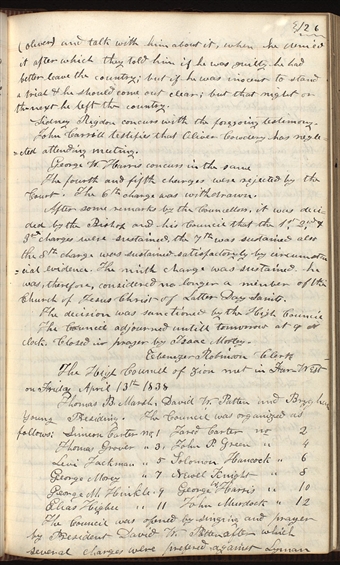 126
(oliver) and talk with him about it, when he denied
it after which they told him if he was guilty he had
better leave the country; but if he was inocent to stand
a trial & he should come out clear; but that night or
the next he left the country.
Sidney Rigdon concurs with the foregoing testimony.
John Carroll testifies that Oliver Cowdery has negle
cted attending meeting.
George W. Harris concurs in the same
The fourth and fifth charges were rejected by the
Court. The 6th charge was withdrawn.
After some remarks by the Councillors, it was deci-
ded by the Bishop and his Council that the 1st, 2nd, &
3rd charges were sustained, the 7th was sustained also
the 8th charge was sustained satisfactorily by circumstan
cial evidence. The ninth charge was sustained. he
was, therefore, considered no longer a member of the
Church of Jesus Christ of Latter Day Saints.
The decision was sanctioned by the High Council
The Council adjourned untill tomorrow at 9 o
clock. Closed in prayer by Isaac Morley.
Ebenezer Robinson Clerk
The High Council of Zion met in Far West
on Friday April 13th 1838
Thomas B. Marsh, David W. Patten and Brigham
Young Presiding. The Council was organized as
follows: Simeon Carter no 1 Jared Carter no 2
Thomas Grover " 3; John P Green " 4
Levi Jackman " 5 Solomon Hancock " 6
George Morey " 7 Newell Knight " 8
George M. Hinkle " 9 George Harris " 10
Elias Higbee " 11 John Murdock " 12
The Council was opened by singing and prayer
by President David W. Patten after which
several charges were prefered against Lyman